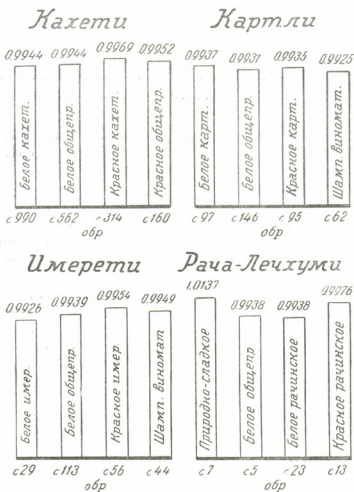 Кахети
0.9944 0.9944 0.9969 0.9952
Белое кахет.
Белое общепр.
Красное кахет.
Красное общепр.
с990 с562 с314 с160
обр
Картли
0.9937 0.9931 0.9935 0.9925
Белое карт.
Белое общепр.
Красное карт.
Шамп. виномат.
с97 с146 с95 с62
обр
Имерети
0.9926 0.9939 0.9954 0.9949
Белое имер.
Белое общепр.
Красное имер.
Шамп. виномат
с29 с113 с56 с44
обр
Рача-Лечхуми
1.0137 0.9938 0.9938 0.9976
Природно-сладкое
Белое общепр
Белое рачинское
Красное рачинское
с7 с5 с23 с13
обр